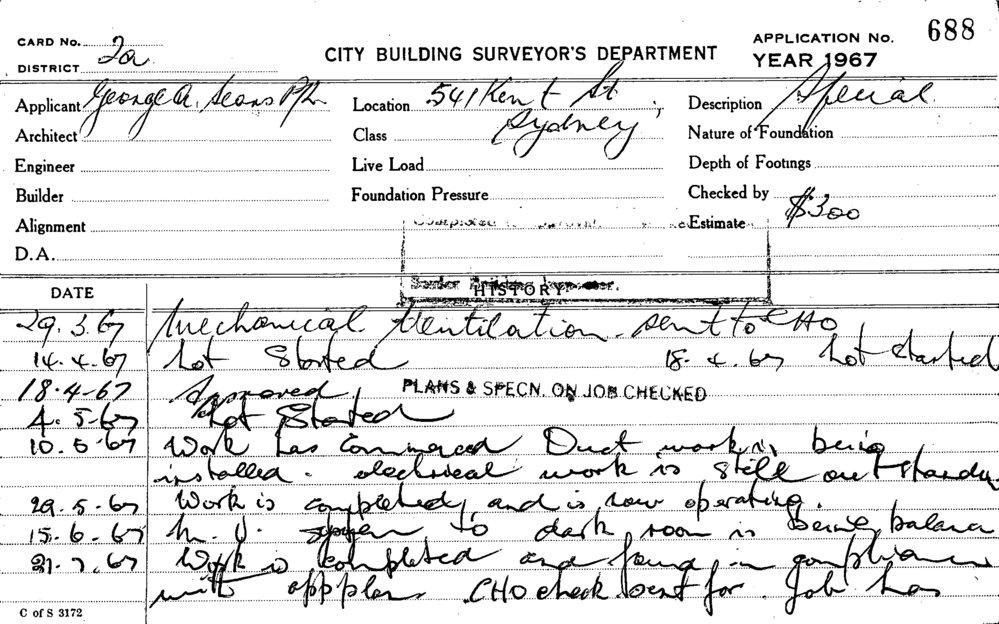 CARD No. 2a
DISTRICT
CITY BUILDING SURVEYOR'S DEPARTMENT
APPLICATION No. 688
YEAR 1967
Applicant George A. Sears P/L
Location 541 Kent St, Sydney
Description Special
Architect
Class
Nature of Foundation
Engineer
Live Load
Depth of Footings
Builder
Foundation Pressure
Checked by
Alignment
Estimate $300
D.A.
DATE
HISTORY
29.3.67 Mechanical Ventilation sent to CHO
14.4.67 Not Started 18.4.67 Not started
18.4.67 Approved PLANS & SPECN. ON JOB CHECKED
4.5.67 Not Started
10.5.67 Work has commenced Duct work is being
installed. electrical work is still outstanding
29.5.67 Work is completed, and is now operating
15.6.67 M.V. system to dark room is being balance
21.7.67 Work is completed and found in compliance
with app plan. CHO check sent for. Job has
C of S 3172